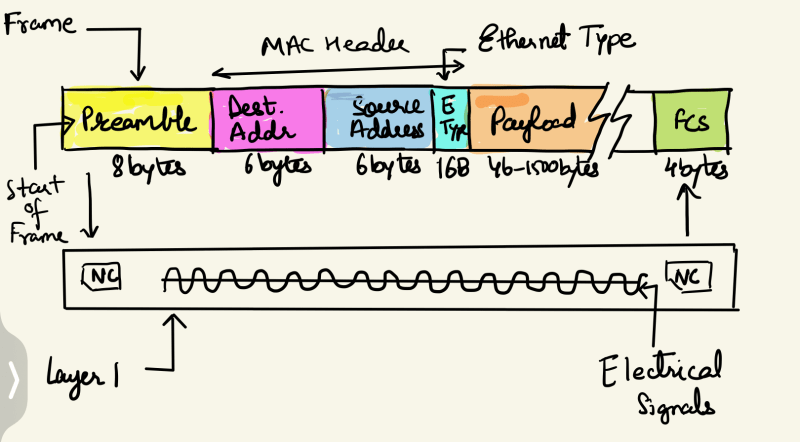 Frame
MAC Header
Ethernet Type
Preamble
Dest.
Addr
Source
Address
E
Type
Payload
FCS
8 bytes
6 bytes
6 bytes
16B
46-1500 bytes
4 bytes
Start
of
Frame
NC
NC
Layer 1
Electrical
Signals